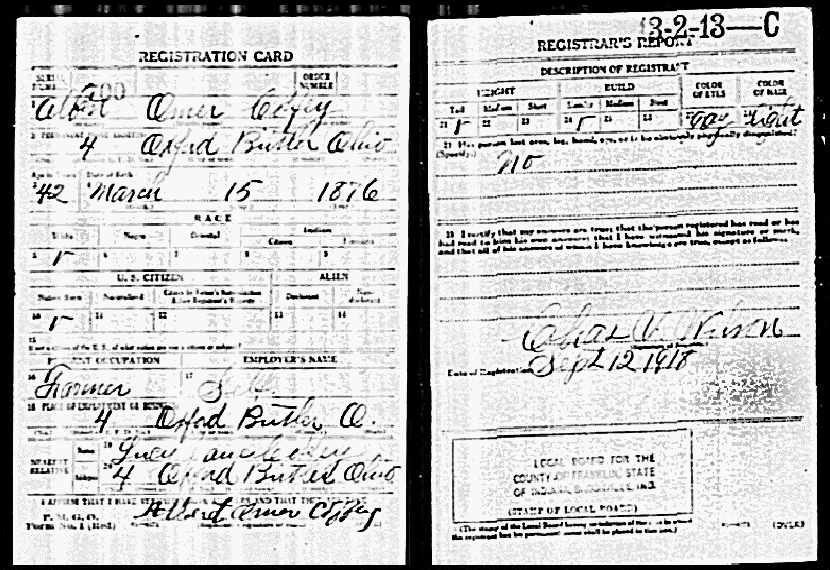 REGISTRATION CARD
SERIAL NUMBER
ORDER NUMBER
Albert Omer
4 Oxford Butler Ohio
Age in Years Date of Birth
42 March 15 1876
RACE
White Negro Oriental Indian
Citizen
5 6 7 8 9
U. S. CITIZEN ALIEN
Native Born Naturalized Declarant
10 11 12 13 14
15
PRESENT OCCUPATION EMPLOYER'S NAME
16 Farmer 17 Self
18 PLACE OF EMPLOYMENT OR BUSINESS
4 Oxford Butler O.
NEAREST RELATIVE
Name 19 Lucy
Address 20 4 Oxford Butler Ohio
I AFFIRM THAT I HAVE
P. M. G. O.
Form No. 1 (Red)
Albert Omer
13-2-13—C
REGISTRAR'S REPORT
DESCRIPTION OF REGISTRANT
HEIGHT BUILD COLOR OF EYES COLOR OF HAIR
Tall Medium Short Slender Medium Stout
21 22 23 24 25 26 Light
29 Has person lost arm, leg, hand, eye, or is he obviously physically disqualified?
(Specify.)
No
30 I certify that my answers are true; that the person registered has read or has
had read to him his own answers; that I have witnessed his signature or mark,
and that all of his answers of which I have knowledge are true, except as follows:
Chas V. Wilson
Date of Registration Sept 12 1918
LOCAL BOARD FOR THE
COUNTY OF FRANKLIN, STATE
OF INDIANA, IND.
(STAMP OF LOCAL BOARD)
(The stamp of the Local Board having jurisdiction of the area in which
the registrant has his permanent home shall be placed in this box.)
(OVER)